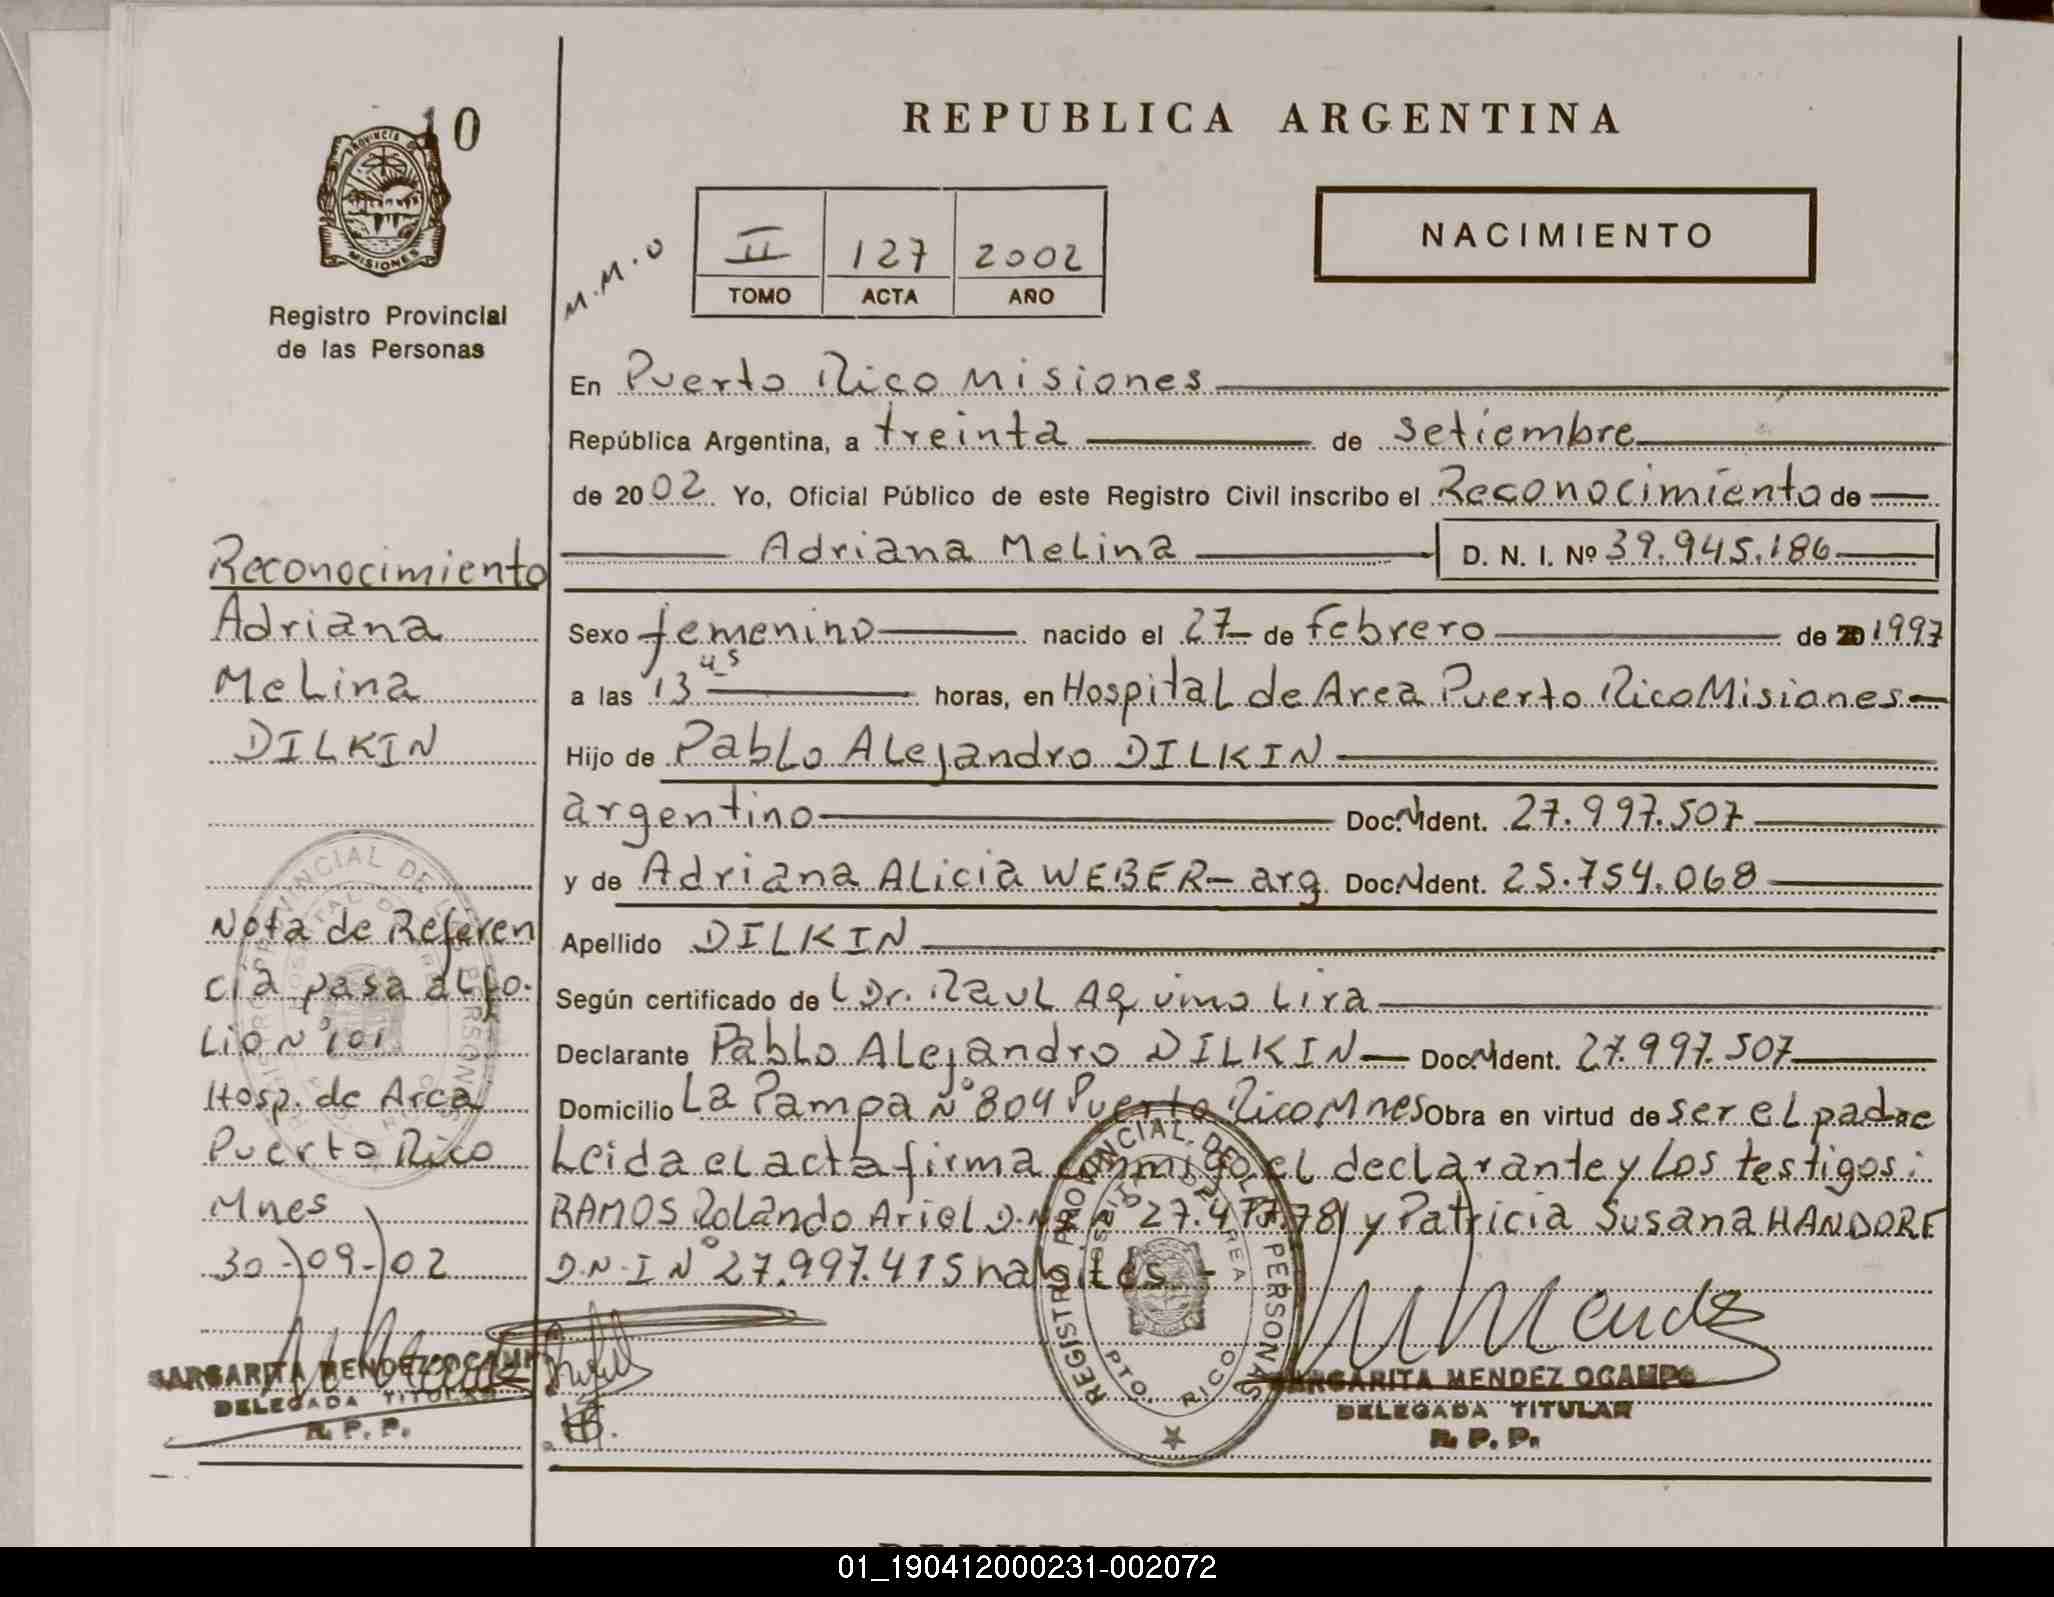 10
PROVINCIA DE
MISIONES
Registro Provincial
de las Personas
REPUBLICA ARGENTINA
NACIMIENTO
M.M.O
II 127 2002
TOMO ACTA AÑO
En Puerto Rico Misiones
República Argentina, a treinta de setiembre
de 2002 Yo, Oficial Público de este Registro Civil inscribo el Reconocimiento de
Adriana Melina D. N. I. Nº 39.945.186
Sexo femenino nacido el 27 de febrero de 20 1997
a las 13 45 horas, en Hospital de Area Puerto Rico Misiones
Hijo de Pablo Alejandro DILKIN
argentino Doc. N Ident. 27.997.507
y de Adriana Alicia WEBER - arg. Doc. N Ident. 25.754.068
Apellido DILKIN
Según certificado de L Dr. Raul Aquino Lira
Declarante Pablo Alejandro DILKIN Doc. N Ident. 27.997.507
Domicilio La Pampa Nº 804 Puerto Rico Mnes Obra en virtud de ser el padre
Leida el acta firma conmigo el declarante y los testigos:
RAMOS Rolando Ariel D.N.I Nº 27.477.781 y Patricia Susana HANDORF
D.N.I Nº 27.997.415 habiles -
Reconocimiento
Adriana
Melina
DILKIN
Nota de Referen
cia pasa al fo.
lio Nº 101
Hosp. de Area
Puerto Rico
Mnes
30-09-02
MARGARITA MENDEZ OCAMPO
DELEGADA TITULAR
R. P. P.
REGISTRO PROVINCIAL DE LAS PERSONAS
PTO. RICO
M Mendez
MARGARITA MENDEZ OCAMPO
DELEGADA TITULAR
R. P. P.
01_190412000231-002072